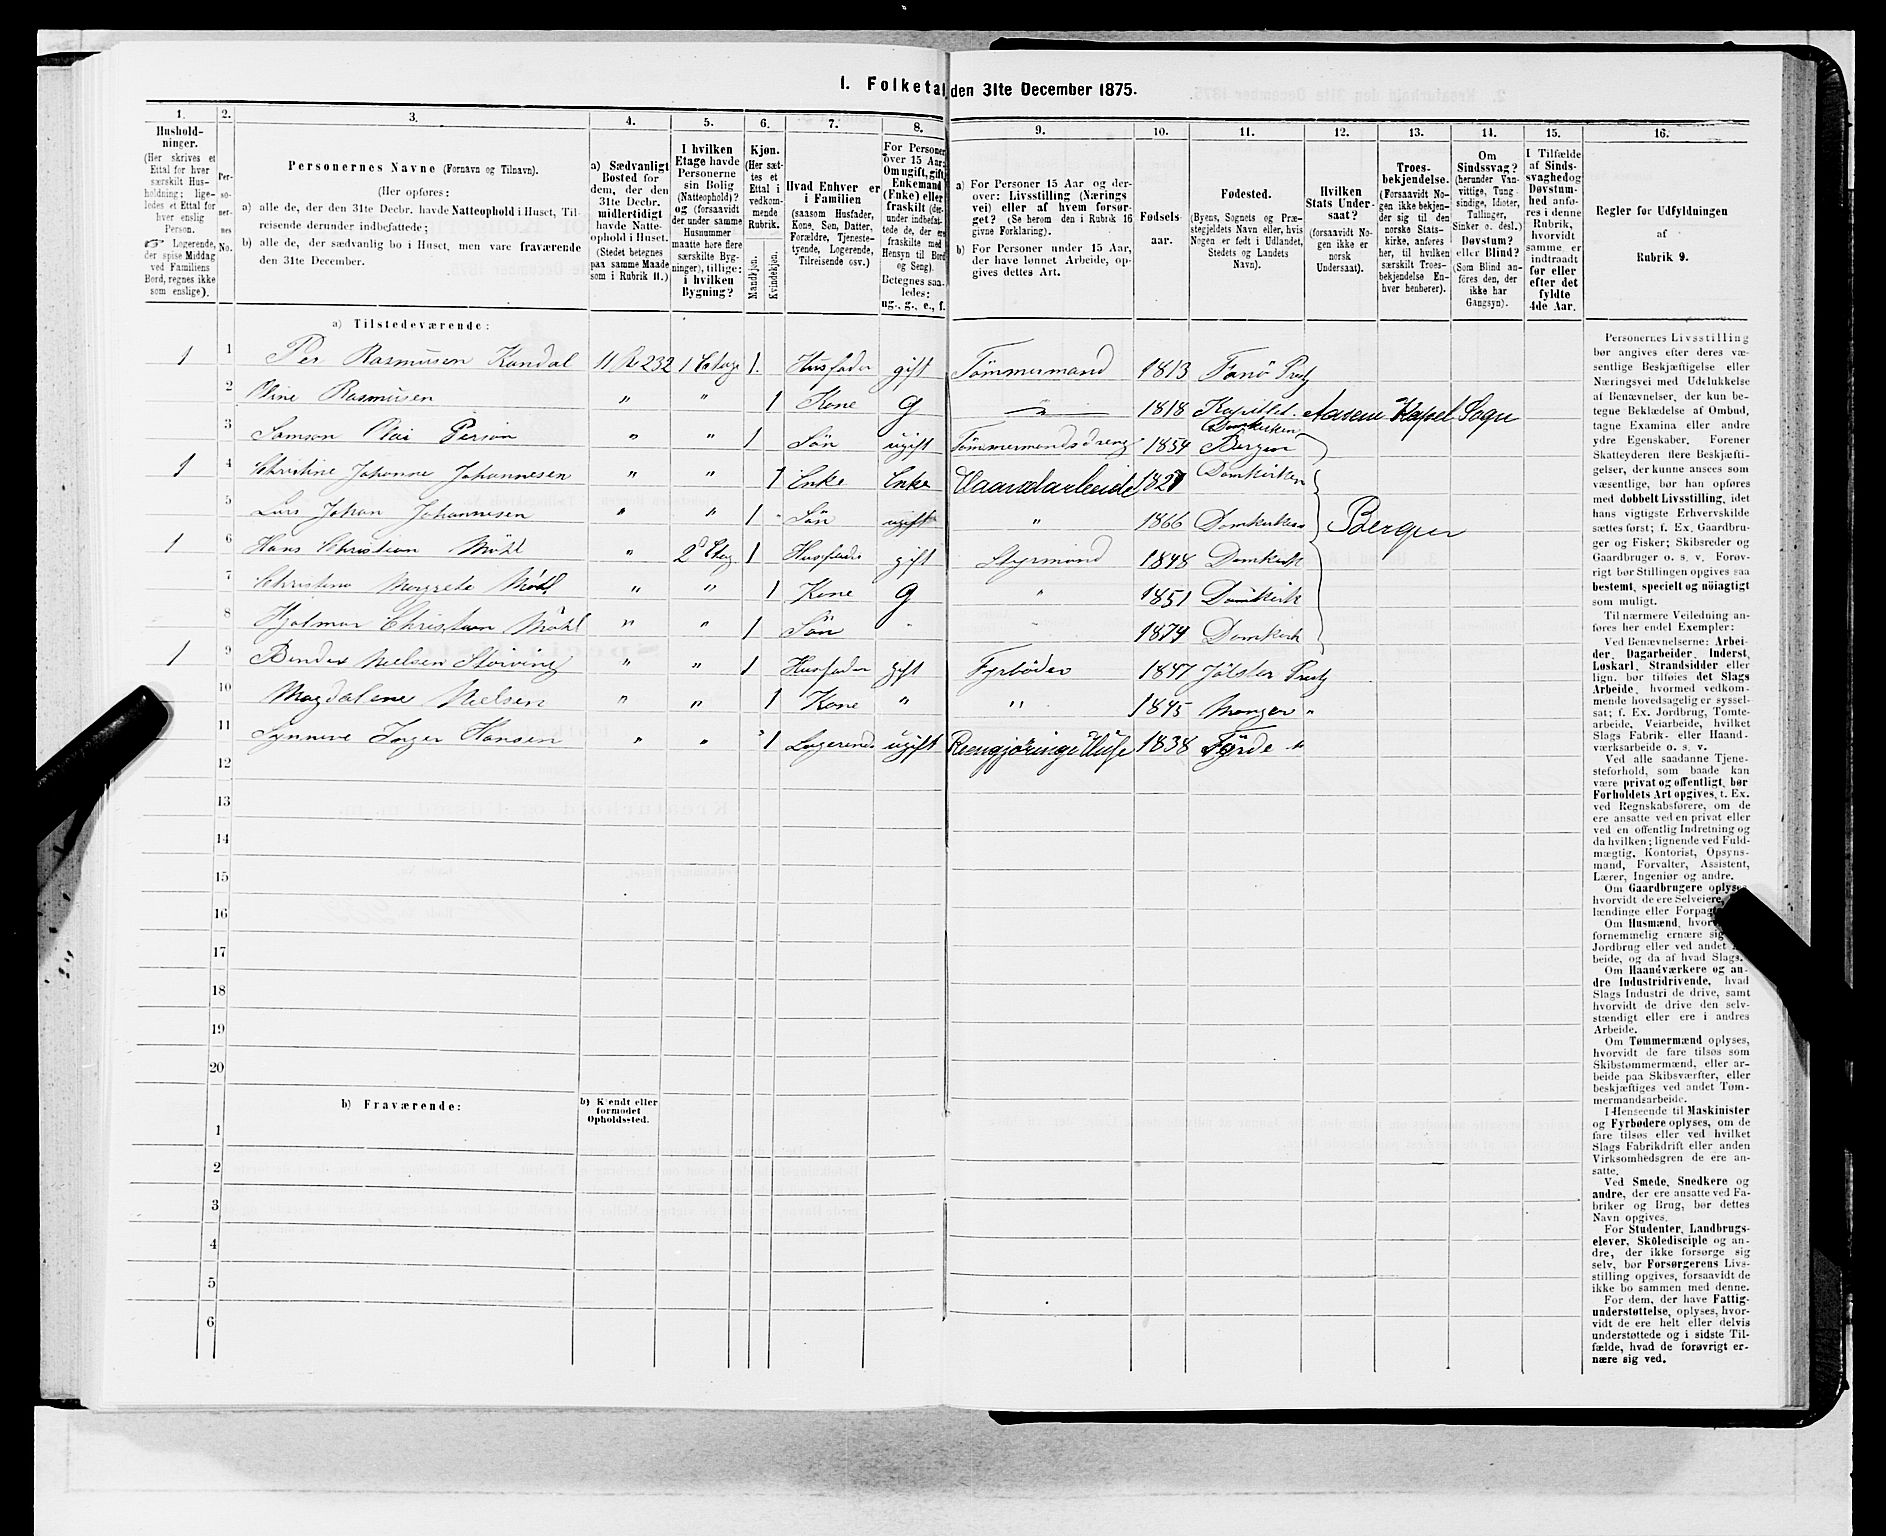 I. Folketal den 31te December 1875.
1. 2. 3. 4. 5. 6. 7. 8. 9. 10. 11. 12. 13. 14. 15. 16.
Hushold-
ninger.
(Her skrives et
Ettal for hver
særskilt Hus-
holdning; lige-
ledes et Ettal for
hver enslig
Person.
☞ Logerende,
der spise Middag
ved Familiens
Bord, regnes ikke
som enslige).
Per-
so-
ner-
nes
No.
Personernes Navne (Fornavn og Tilnavn).
(Her opføres:
a) alle de, der den 31te Decbr. havde Natteophold i Huset, Til-
reisende derunder indbefattede;
b) alle de, der sædvanlig bo i Huset, men vare fraværende
den 31te December.
a) Sædvanligt
Bosted for
dem, der den
31te Decbr.
midlertidigt
havde Natte-
ophold i Huset.
(Stedet betegnes
paa samme Maade
som i Rubrik 11.)
I hvilken
Etage havde
Personerne
sin Bolig
(Natteophold)?
og (forsaavidt
der under samme
Husnummer
maatte høre flere
særskilte Byg-
ninger), tillige:
i hvilken
Bygning?
Kjøn.
(Her sæt-
tes et
Ettal i
vedkom-
mende
Rubrik.
Mandkjøn.
Kvindekjøn.
Hvad Enhver er
i Familien
(saasom Husfader,
Kone, Søn, Datter,
Forældre, Tjeneste-
tyende, Logerende,
Tilreisende osv.)
For Personer
over 15 Aar:
Om ugift, gift,
Enkemand
(Enke) eller
fraskilt (der-
under indbefat-
tede de, der ere
fraskilte med
Hensyn til Bord
og Seng).
Betegnes saa-
ledes:
ug., g., e., f.
a) For Personer 15 Aar og der-
over: Livsstilling (Nærings
vei) eller af hvem forsør-
get? (Se herom den i Rubrik 16
givne Forklaring).
b) For Personer under 15 Aar,
der have lønnet Arbeide, op-
gives dettes Art.
Fødsels-
aar.
Fødested.
(Byens, Sognets og Præ-
stegjeldets Navn eller, hvis
Nogen er født i Udlandet,
Stedets og Landets
Navn).
Hvilken
Stats Under-
saat?
(forsaavidt No-
gen ikke er
norsk
Undersaat).
Troes-
bekjendelse.
(Forsaavidt No-
gen ikke bekjen-
der sig til den
norske Stats-
kirke, anføres
her, til hvilken
særskilt Troes-
bekjendelse En-
hver henhører).
Om
Sindssvag?
(herunder Van-
vittige, Tung-
sindige, Idioter,
Tullinger,
Sinker o. desl.)
Døvstum?
eller Blind?
(Som Blind an-
føres den, der
ikke har
Gangsyn).
I Tilfælde
af Sinds-
svaghedog
Døvstum-
hed anfø-
res i denne
Rubrik,
hvorvidt
samme er
indtraadt
før eller
efter det
fyldte
4de Aar.
Regler før Udfyldningen
af
Rubrik 9.
a) Tilstedeværende:
1 1 Per Rasmusen Kandal 11 Ro 232 1 Etage 1. Husfader gift Tömmermand 1813 Fanö Prestg
2 Oline Rasmusen " " 1 Kone g " 1818 Kapellet. Aasene Kapel Sogn
3 Samson Olai Person " " 1 Sön ugift Tömmermandsdreng 1854 Domkirken Bergen
1 4 Christine Johanne Johannesen " " 1 Enke Enke Haandarbeide 1827 Domkirken
5 Lars Johan Johannesen " " 1 Sön ugift " 1866 Domkirken Bergen
1 6 Hans Christian Möhl " 2 Etag 1 Husfader gift Styrmand 1848 Domkirk
7 Christine Margrete Möhl " " 1 Kone g " 1851 Domkirk
8 Hjalmar Christian Möhl " " 1 Sön " " 1874 Domkirk
1 9 Bendix Nielsen " " 1 Husfader gift Fyrböder 1847 Jölster Prestg
10 Magdalene Nielsen " " 1 Kone " " 1845 Manger "
11 Synneve Inger Hansen " " 1 Logerende ugift Reengjöring i Huse 1838 Förde "
12
13
14
15
16
17
18
19
20
b) Fraværende:
b) Kjendt eller
formodet
Opholdssted.
1
2
3
4
5
6
Personernes Livsstilling
bør angives efter deres væ-
sentlige Beskjæftigelse eller
Næringsvei med Udelukkelse
af Benævnelser, der kun be-
tegne Beklædelse af Ombud,
tagne Examina eller andre
ydre Egenskaber. Forener
Skatteyderen flere Beskjæfti-
gelser, der kunne ansees som
væsentlige, bør han opføres
med dobbelt Livsstilling, idet
hans vigtigste Erhvervskilde
sættes først; f. Ex. Gaardbru-
ger og Fisker; Skibsreder og
Gaardbruger o. s. v. Forøv-
rigt bør Stillingen opgives saa
bestemt, specielt og nöiagtigt
som muligt.
Til nærmere Veiledning an-
føres her endel Exempler:
Ved Benævnelserne: Arbei-
der, Dagarbeider, Inderst,
Løskarl, Strandsidder eller
lign. bør tilføies det Slags
Arbeide, hvormed vedkom-
mende hovedsagelig er syssel-
sat; f. Ex. Jordbrug, Tomte-
arbeide, Veiarbeide, hvilket
Slags Fabrik- eller Haand-
værksarbeide o. s. v.
Ved alle saadanne Tjene-
steforhold, som baade kan
være privat og offentligt, bør
Forholdets Art opgives, t. Ex.
ved Regnskabsførere, om de
ere ansatte ved en privat eller
ved en offentlig Indretning og
da hvilken; lignende ved Fuld-
mægtig, Kontorist, Opsyns-
mand, Forvalter, Assistent,
Lærer, Ingeniør og andre.
Om Gaardbrugere oplyses,
hvorvidt de ere Selveiere,
lændinge eller
Om Husmænd,
fornemmelig ernære sig
Jordbrug eller ved andet
beide, og da af hvad Slags.
Om Haandværkere og an-
dre Industridrivende, hvad
Slags Industri de drive, samt
hvorvidt de drive den selv-
stændigt eller ere i andres
Arbeide.
Om Tømmermænd oplyses,
hvorvidt de fare tilsøs som
Skibstømmermænd, eller ar-
beide paa Skibsværfter, eller
beskjæftiges ved andet Tøm-
mermandsarbeide.
I Henseende til Maskinister
og Fyrbødere oplyses, om de
fare tilsøs eller ved hvilket
Slags Fabrikdrift eller anden
Virksomhedsgren de ere an-
satte.
Ved Smede, Snedkere og
andre, der ere ansatte ved Fa-
briker og Brug, bør dettes
Navn opgives.
For Studenter, Landbrugs-
elever, Skôledisciple og an-
dre, der ikke forsørge sig
selv, bør Forsørgerens Livs-
stilling opgives, forsaavidt de
ikke bo sammen med denne.
For dem, der have Fattig-
understøttelse, oplyses, hvor-
vidt de ere helt eller delvis
understøttede og i sidste Til-
fælde, hvad de forøvrigt er-
nære sig ved.